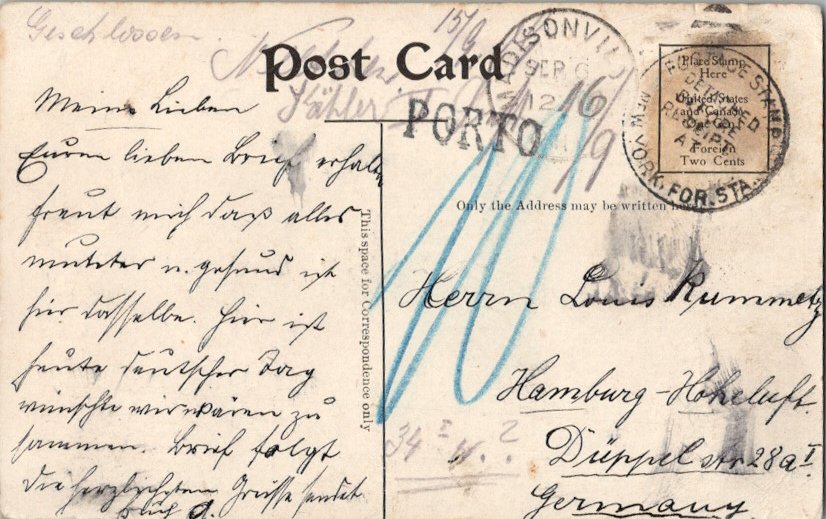 Geschlossen
15/9
Post Card
MADISONVILLE
SEP 6
12
PORTO
16/9
10
Place Stamp
Here
United States
and Canada
One Cent
Foreign
Two Cents
POSTAGE STAMP
DETACHED
BEFORE
RECEIPT
AT
NEW YORK, FOR. STA.
Only the Address may be written here
This space for Correspondence only
Meine Lieben
Euren lieben Brief erhalten
freut mich daß alles
munter u. gesund ist
hier dasselbe. Hier ist
heute deutscher Tag
wünschte wir wären zu
sammen. Brief folgt
Die herzlichsten Grüsse sendet
Euch
Herrn Louis Rummetz
Hamburg-Hoheluft.
Düppelstr 28a I
Germany
34 I